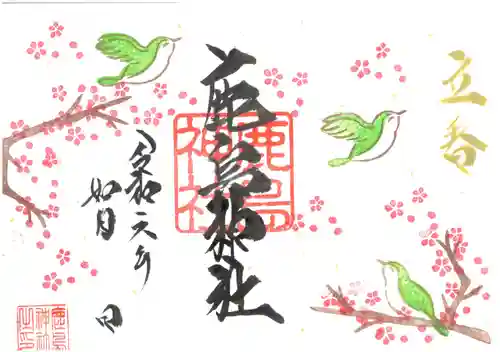 立春
鹿島神社
鹿島
神社
令和六年
如月 日
鹿島
神社
之印